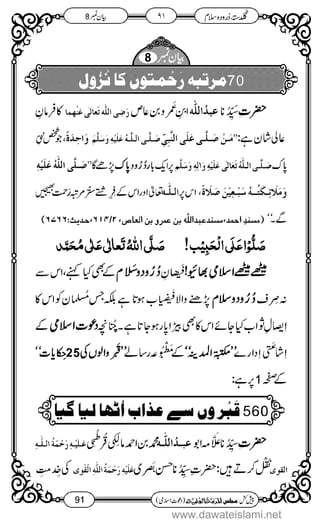 گلدستہ درود و سلام ۹۱ بیان نمبر 8
بیان نمبر 8
70 مرتبہ رَحمتوں کا نُزُول
حضرتِ سیِّدُنا عبدُاللہ ابنِ عَمرو بن عاص رَضِیَ اللہُ تَعَالٰی عَنْہُمَا کا فرمانِ
عالی شان ہے: ”مَنْ صَلَّی عَلَی النَّبِیِّ صَلَّی اللہُ عَلَیْہِ وَسَلَّمَ وَاحِدَۃً، جو شخص نبیِّ
پاک صَلَّی اللہُ تَعَالٰی عَلَیْہِ وَاٰلِہٖ وَسَلَّمَ پر ایک بار دُرُودِ پاک پڑھے گا صَلَّی اللہُ عَلَیْہِ
وَمَلَائِکَتُہُ سَبْعِیْنَ صَلَاۃً، اس پر اللہ تعالٰی اور اس کے فرشتے ستَّر مرتبہ رَحمت بھیجیں
گے۔“ (مسندِ احمد، مسند عبداللہ بن عمرو بن العاص، ۶۱۴/۲، حدیث: ۶۷۶۶)
صَلُّوْا عَلَی الْحَبِیْب! صَلَّی اللہُ تَعَالٰی عَلٰی مُحَمَّد
میٹھے میٹھے اسلامی بھائیو! فیضانِ دُرُود و سلام کے بھی کیا کہنے، اس سے
نہ صِرف دُرُود و سلام پڑھنے والا فیضیاب ہوتا ہے بلکہ جس مُسلمان کو اس کا
ایصالِ ثواب کیا جائے اس کا بھی بیڑا پار ہو جاتا ہے۔ چُنانچہ دعوتِ اسلامی کے
اِشاعتی اِدارے ”مکتبۃ المدینہ“ کے مَطْبُوعہ رسالے ”قبر والوں کی 25 حکایات“
کے صفحہ 1 پر ہے:
560 قبروں سے عذاب اُٹھا لیا گیا
حضرتِ سیِّدُنا علّامہ ابو عبدُ اللہ محمد بن احمد مالکی قُرطُبی عَلَیْہِ رَحْمَۃُ اللہِ
الْقَوِی نَقل کرتے ہیں: حضرتِ سیِّدُنا حَسَن بَصْری عَلَیْہِ رَحْمَۃُ اللہِ الْقَوِی کی خدمت میں
91
www.dawateislami.net